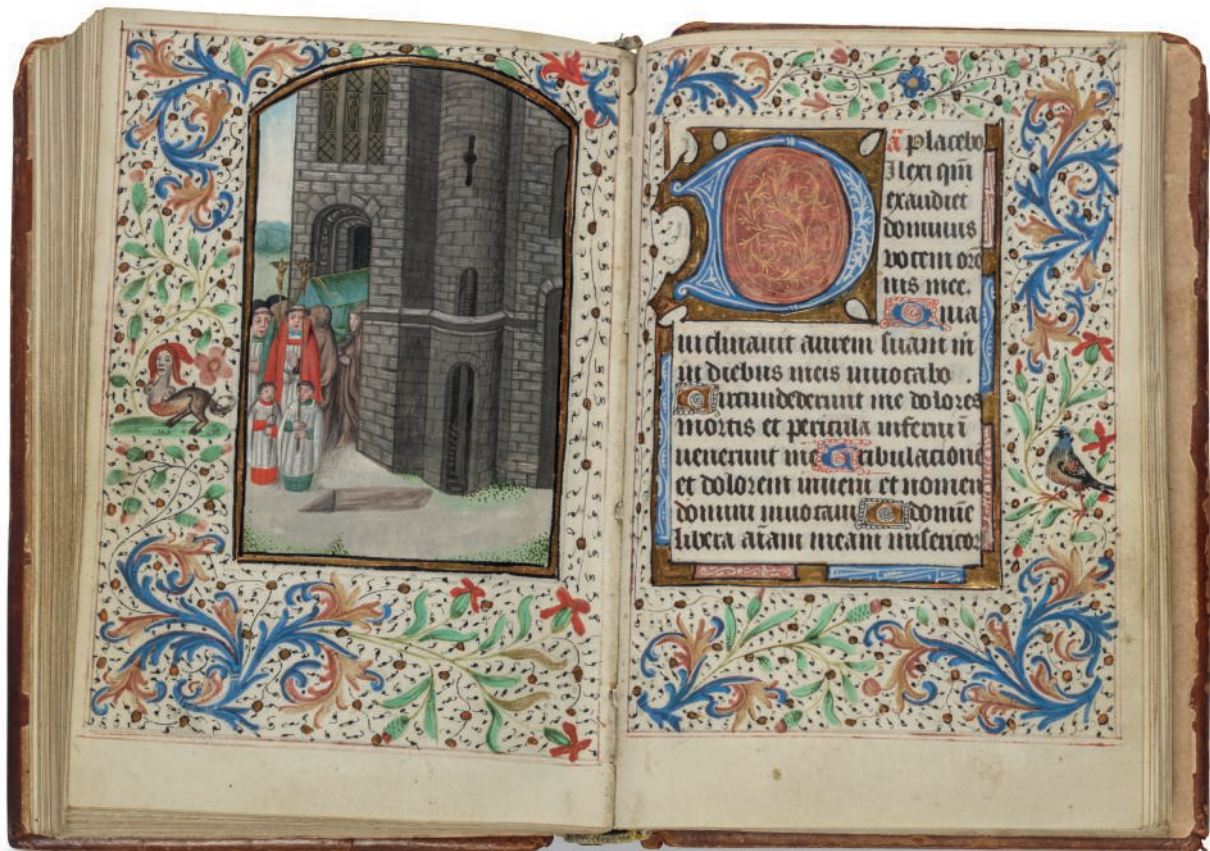 ā placebo
Dilexi qm̄
exaudiet
dominus
vocem orō
nis mee.
Quia
inclinauit aurem suam m̄
in diebus meis inuocabo
Circumdederunt me dolores
mortis et pericula inferni ī
uenerunt me Tribulacione
et dolorem inueni et nomen
domini inuocaui O domīe
libera aīam meam misericor